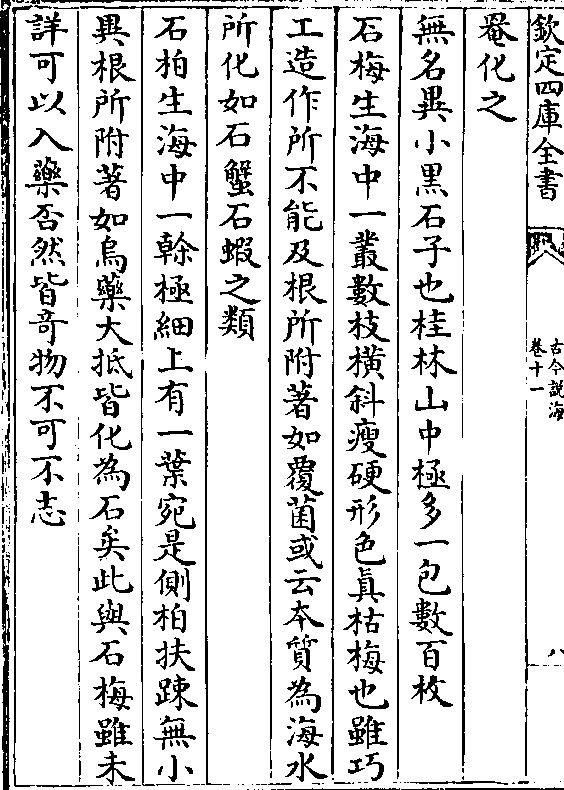 欽定四庫全書
古今說海
卷十一
八
罨化之
無名異小黒石子也桂林山中極多一包數百枚
石梅生海中一叢數枝橫斜瘦硬形色真枯梅也雖巧
工造作所不能及根所附著如覆菌或云本質為海水
所化如石蟹石蝦之類
石柏生海中一幹極細上有一葉宛是側柏扶踈無小
異根所附著如烏藥大抵皆化為石矣此與石梅雖未
詳可以入藥否然皆竒物不可不志